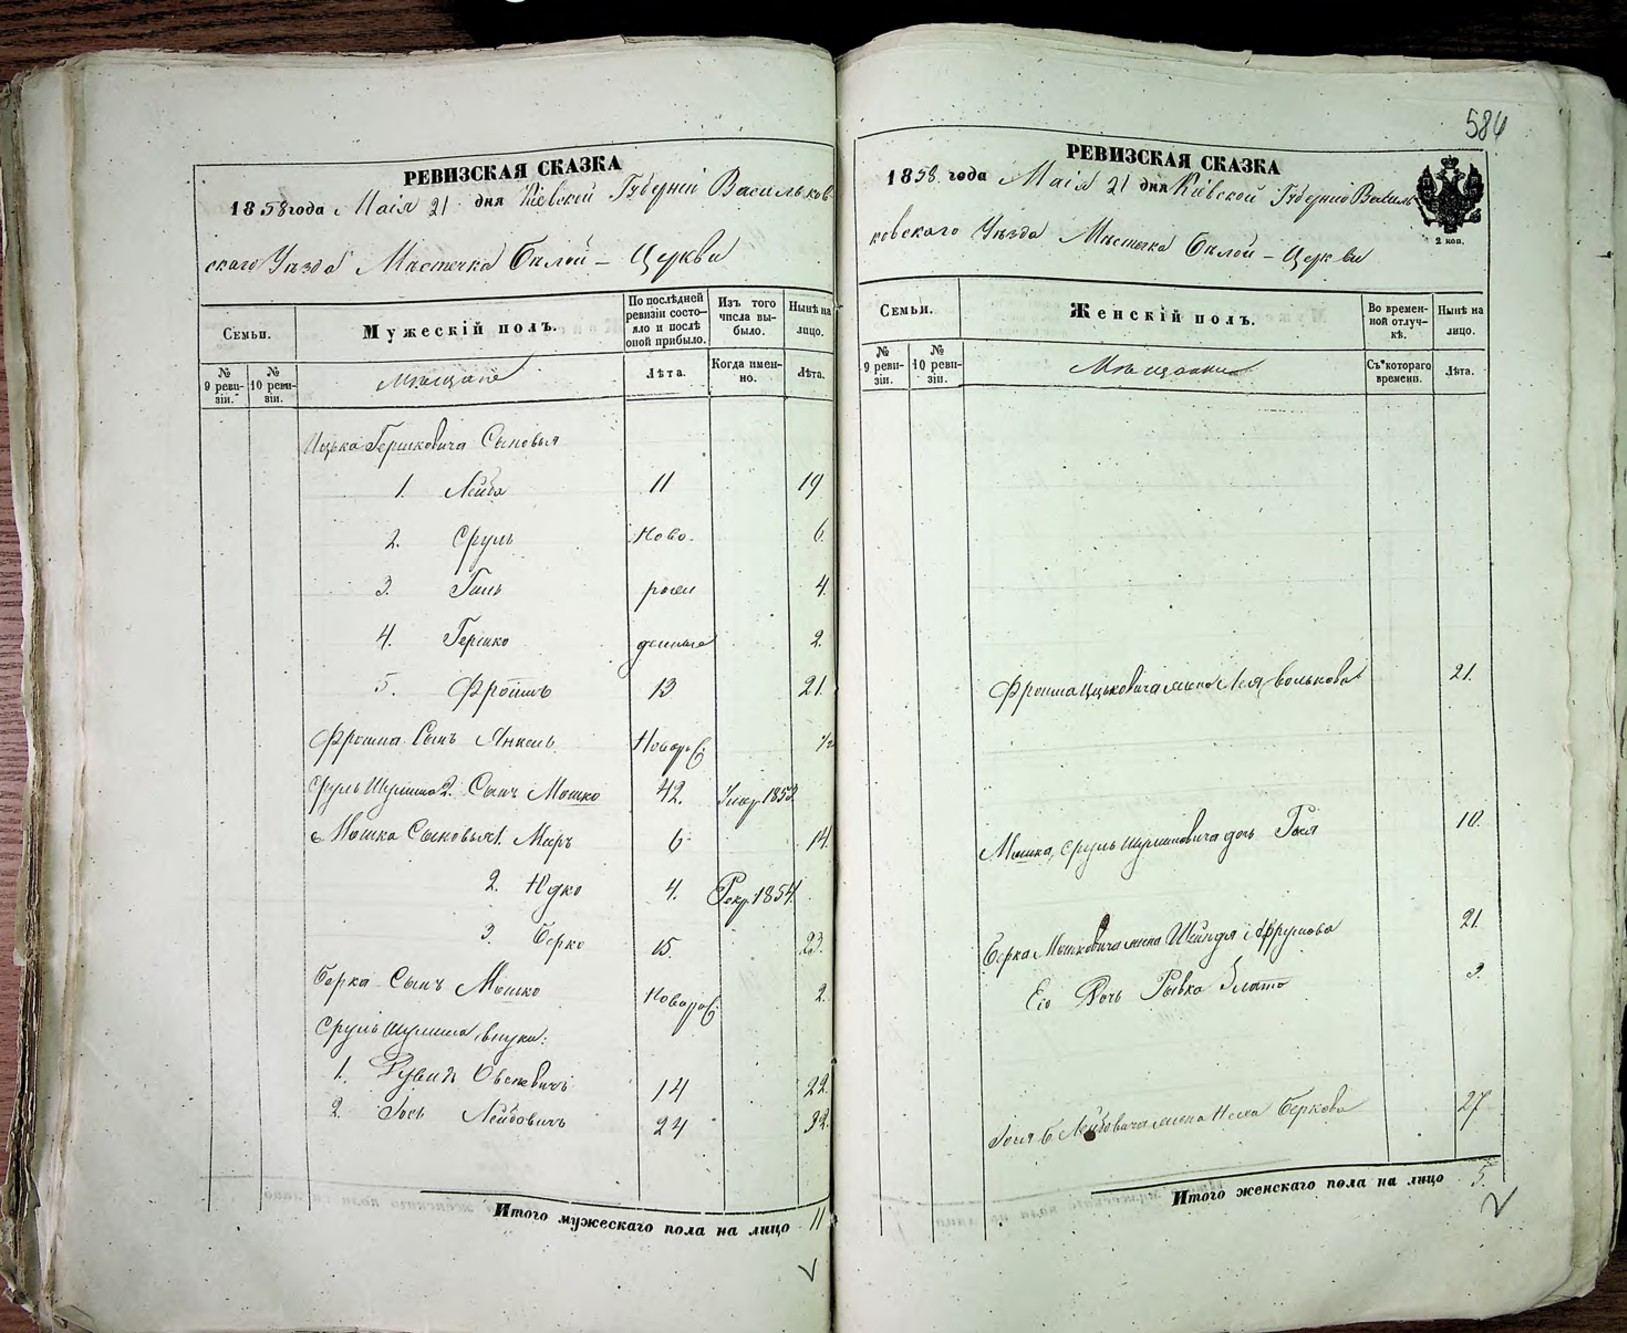 РЕВИЗСКАЯ СКАЗКА
1858 года Маія 21 дня Кіевской Губерніи Васильков-
скаго Уѣзда Мѣстечка Бѣлой – Церкви
Семьи.
Мужескій полъ.
По послѣдней ревизіи состо-яло и послѣ оной прибыло.
Изъ того числа вы-было.
Нынѣ на лицо.
№ 9 реви-зіи.
№ 10 реви-зіи.
Мѣщане
Лѣта.
Когда имен-но.
Лѣта.
Ицька Гершковича Сыновья
1. Лейба 11 19
2. Сруль Ново- 6.
3. Гань рожен 4.
4. Гершко денные 2.
5. Фроимъ 13 21.
Фроима Сынъ Янкель Новор½
Сруль Шулима 2. Сынъ Мошко 42. Умер. 1853
Мошка Сыновья 1. Меръ 6 14.
2. Юдко 4. Рекр. 1854.
3. Берко 15. 23.
Берка Сынъ Мошко Новорож: 2.
Сруль Шулима внуки:
1. Рувинъ Овсеевичъ 14 22.
2. Лейбовичъ 24 32.
Итого мужескаго пола на лицо 11
586
РЕВИЗСКАЯ СКАЗКА
1858 года Маія 21 дня Кіевской Губерніи Василь-
2 коп.
ковскаго Уѣзда Мѣстечка Бѣлой – Церкви
Семьи.
Женскій полъ.
Во времен-ной отлуч-кѣ.
Нынѣ на лицо.
№ 9 реви-зіи.
№ 10 реви-зіи.
Мѣщанки
Съ котораго времени.
Лѣта.
Фроима Ицьковича жена Лея Волькова 21.
Мошка Сруль Шулимовича дочь Гося 10.
Берка Мошковича жена Шейндя Фрумова 21.
Его Дочь Рывка Злата 3.
Лейбовича жена Неха Беркова 27
Итого женскаго пола на лицо 5.